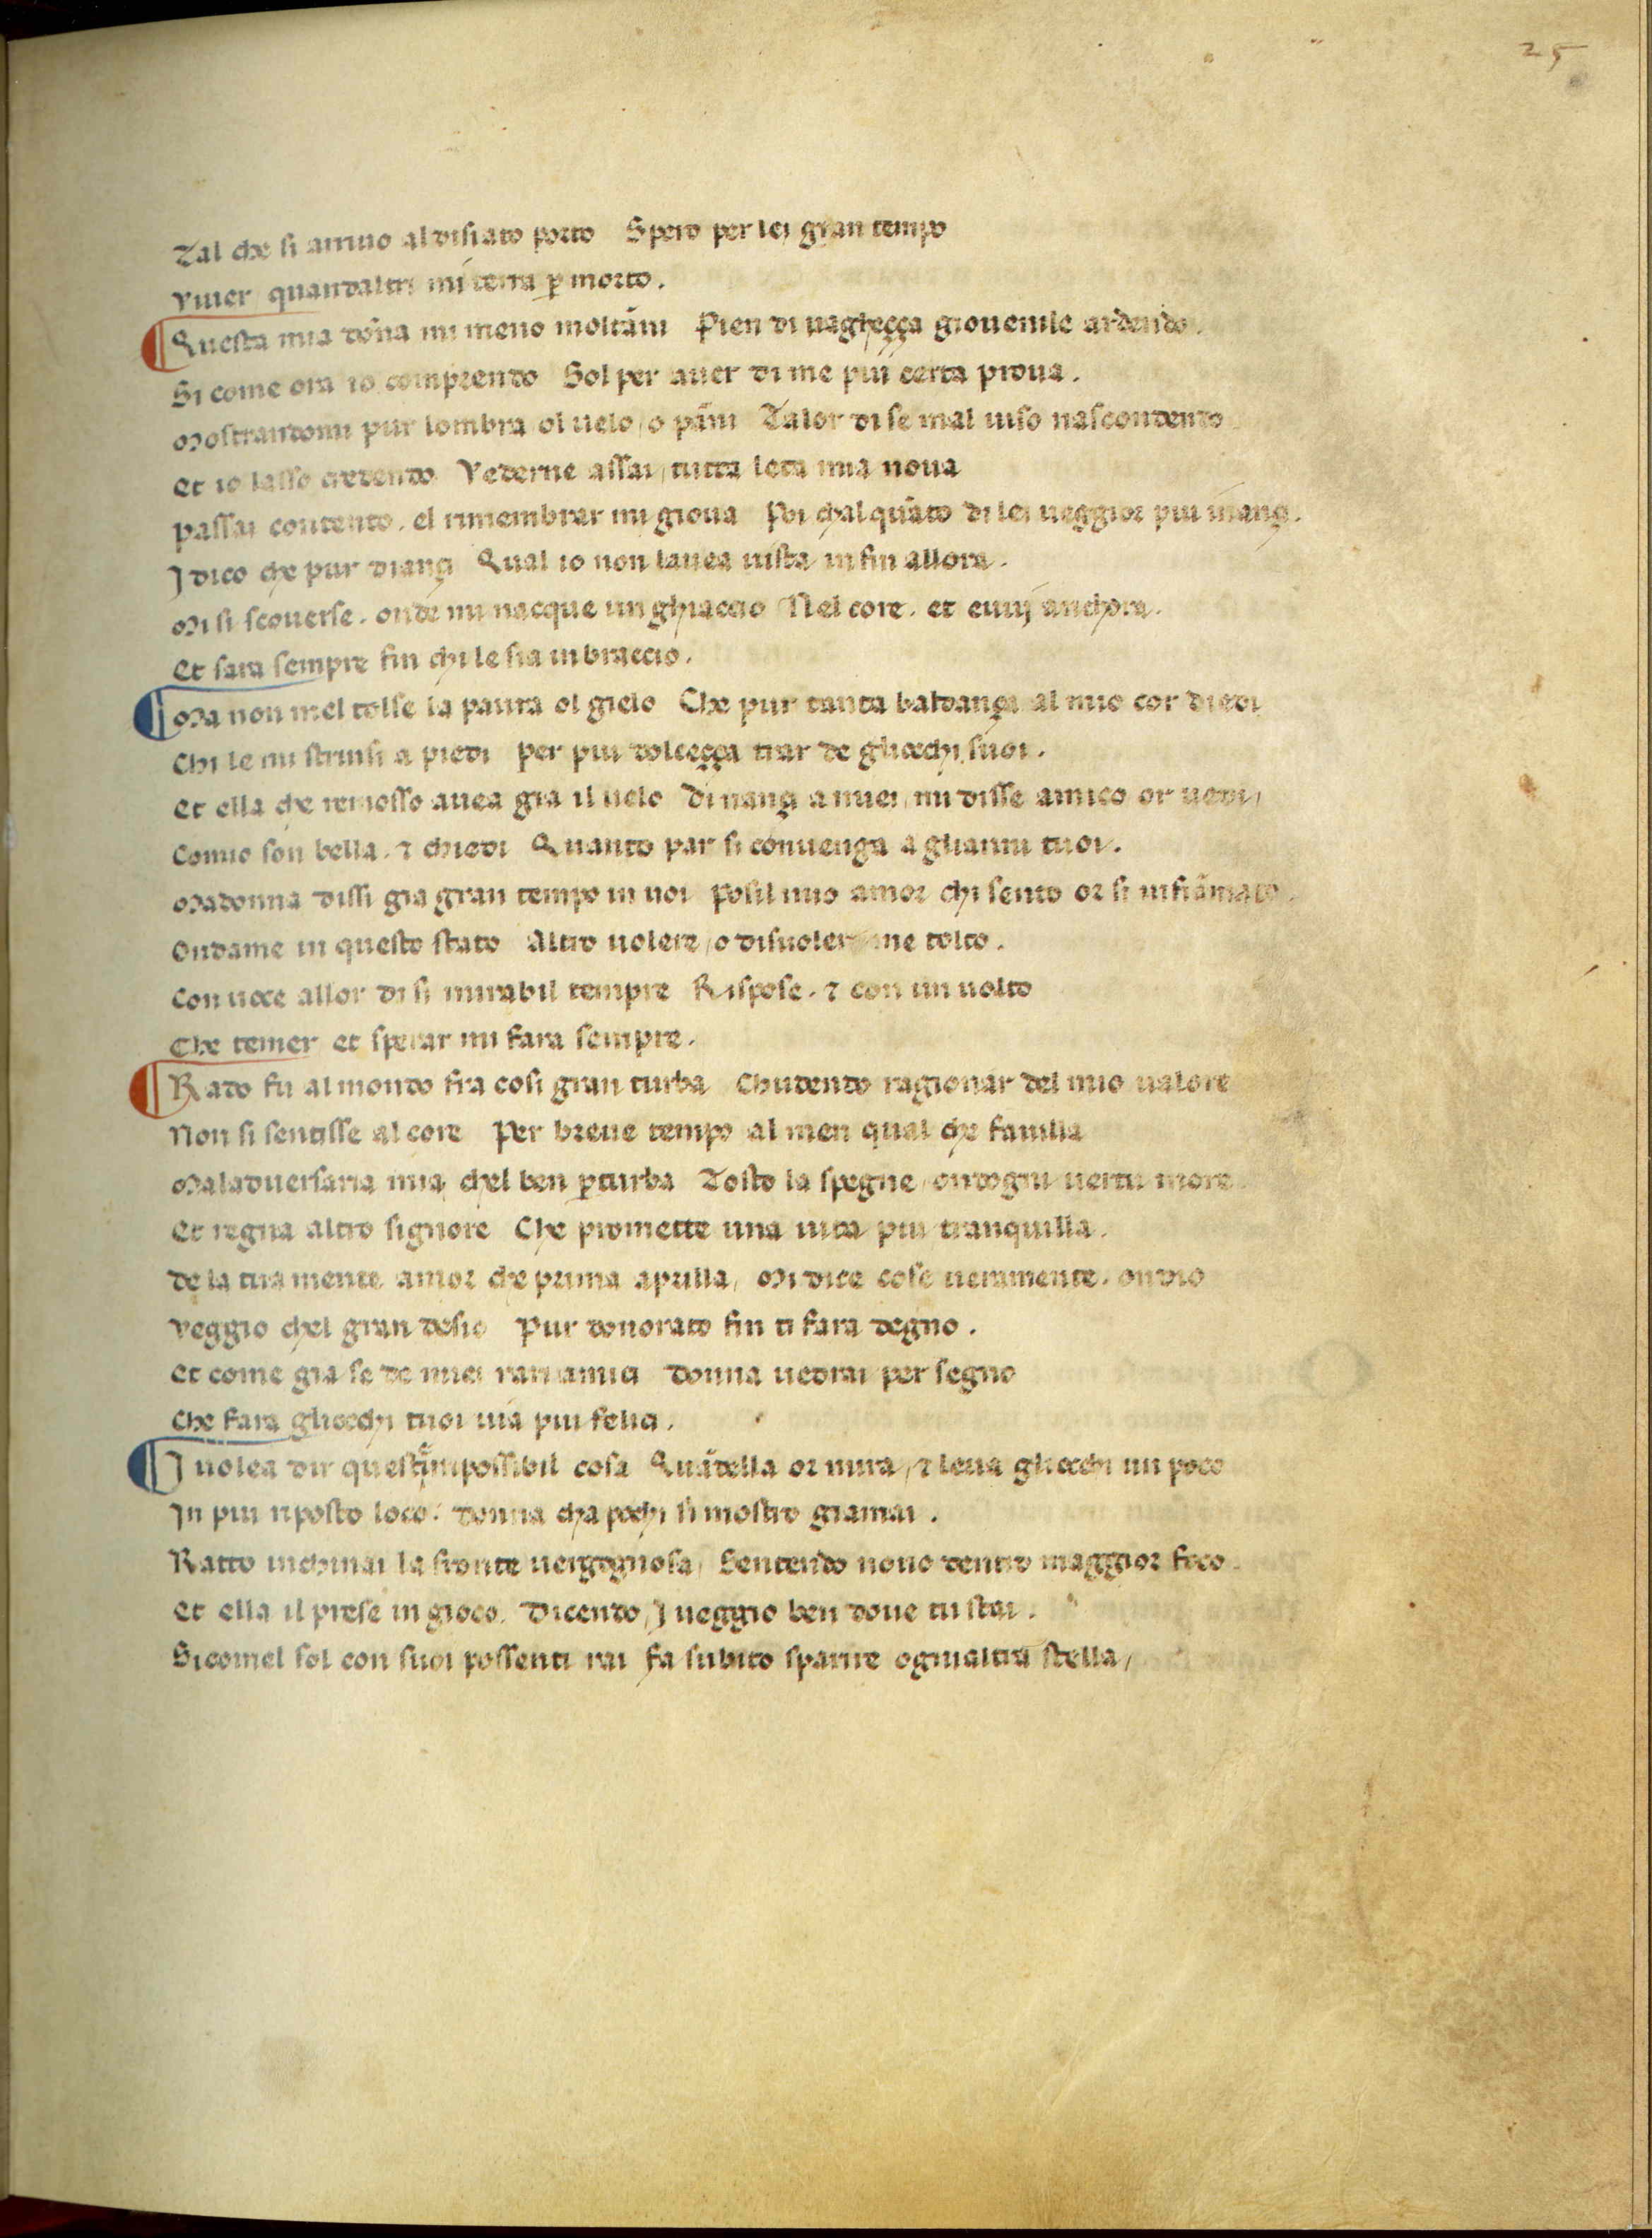 25
Tal che si arriuo al disiato porto Spero per lei gran tempo
Viuer quandaltri mi terra ꝑ morto.
Questa mia dōna mi meno moltāni Pien di uagheçça giouenile ardendo.
Si come ora io comprendo Sol per auer di me piu certa proua.
Mostrandomi pur lombra ol uelo o pāni Talor di se mal uiso nascondendo
Et io lasso credendo Vederne assai, tutta leta mia noua
Passai contento. el rimembrar mi gioua Poi chalquāto di lei ueggior piu inançi.
I dico che pur diançi Qual io non lauea uista infin allora.
Mi si scouerse. onde mi nacque un ghiaccio Nel core. et euui anchora.
Et sara sempre fin chi le sia in braccio.
Ma non mel tolse la paura ol gielo Che pur tanta baldança al mio cor diedi
Chi le mi strinsi a piedi per piu dolceçça trar de gliocchi suoi.
Et ella che remosso auea gia il uelo Dinançi a miei, mi disse amico or uedi,
Comio son bella. ⁊ chiedi Quanto par si conuenga a glianni tuoi.
Madonna dissi gia gran tempo in uoi Posil mio amor chi sento or si infiāmato.
Ondame in questo stato Altro uolere, o disuoler me tolto.
Con uoce allor di si mirabil tempre Rispose. ⁊ con un uolto
Che temer et sperar mi fara sempre.
Rado fu al mondo fra cosi gran turba Chudendo ragionar del mio ualore
Non si sentisse al core Per breue tempo al men qual che fauilla
Maladuersaria mia, chel ben ꝑturba Tosto la spegne, ondogni uertu more
Et regna altro signore Che promette una uita piu tranquilla.
De la tua mente amor che prima aprilla, Mi dice cose ueramente. ondio
Veggio chel gran desio Pur donorato fin ti fara degno.
Et come gia se de miei rari amici Donna uedrai per segno
Che fara gliocchi tuoi uia piu felici.
I uolea dir questā impossibil cosa Quādella or mira, ⁊ leua gliocchi un poco
In piu riposto loco. Donna cha pochi si mostro giamai.
Ratto inchinai la fronte uergognosa, Sentendo nouo dentro maggior foco.
Et ella il prese in gioco. Dicendo, I ueggio ben doue tu stai.
Sicomel sol con suoi possenti rai Fa subito sparire ognialtra stella,